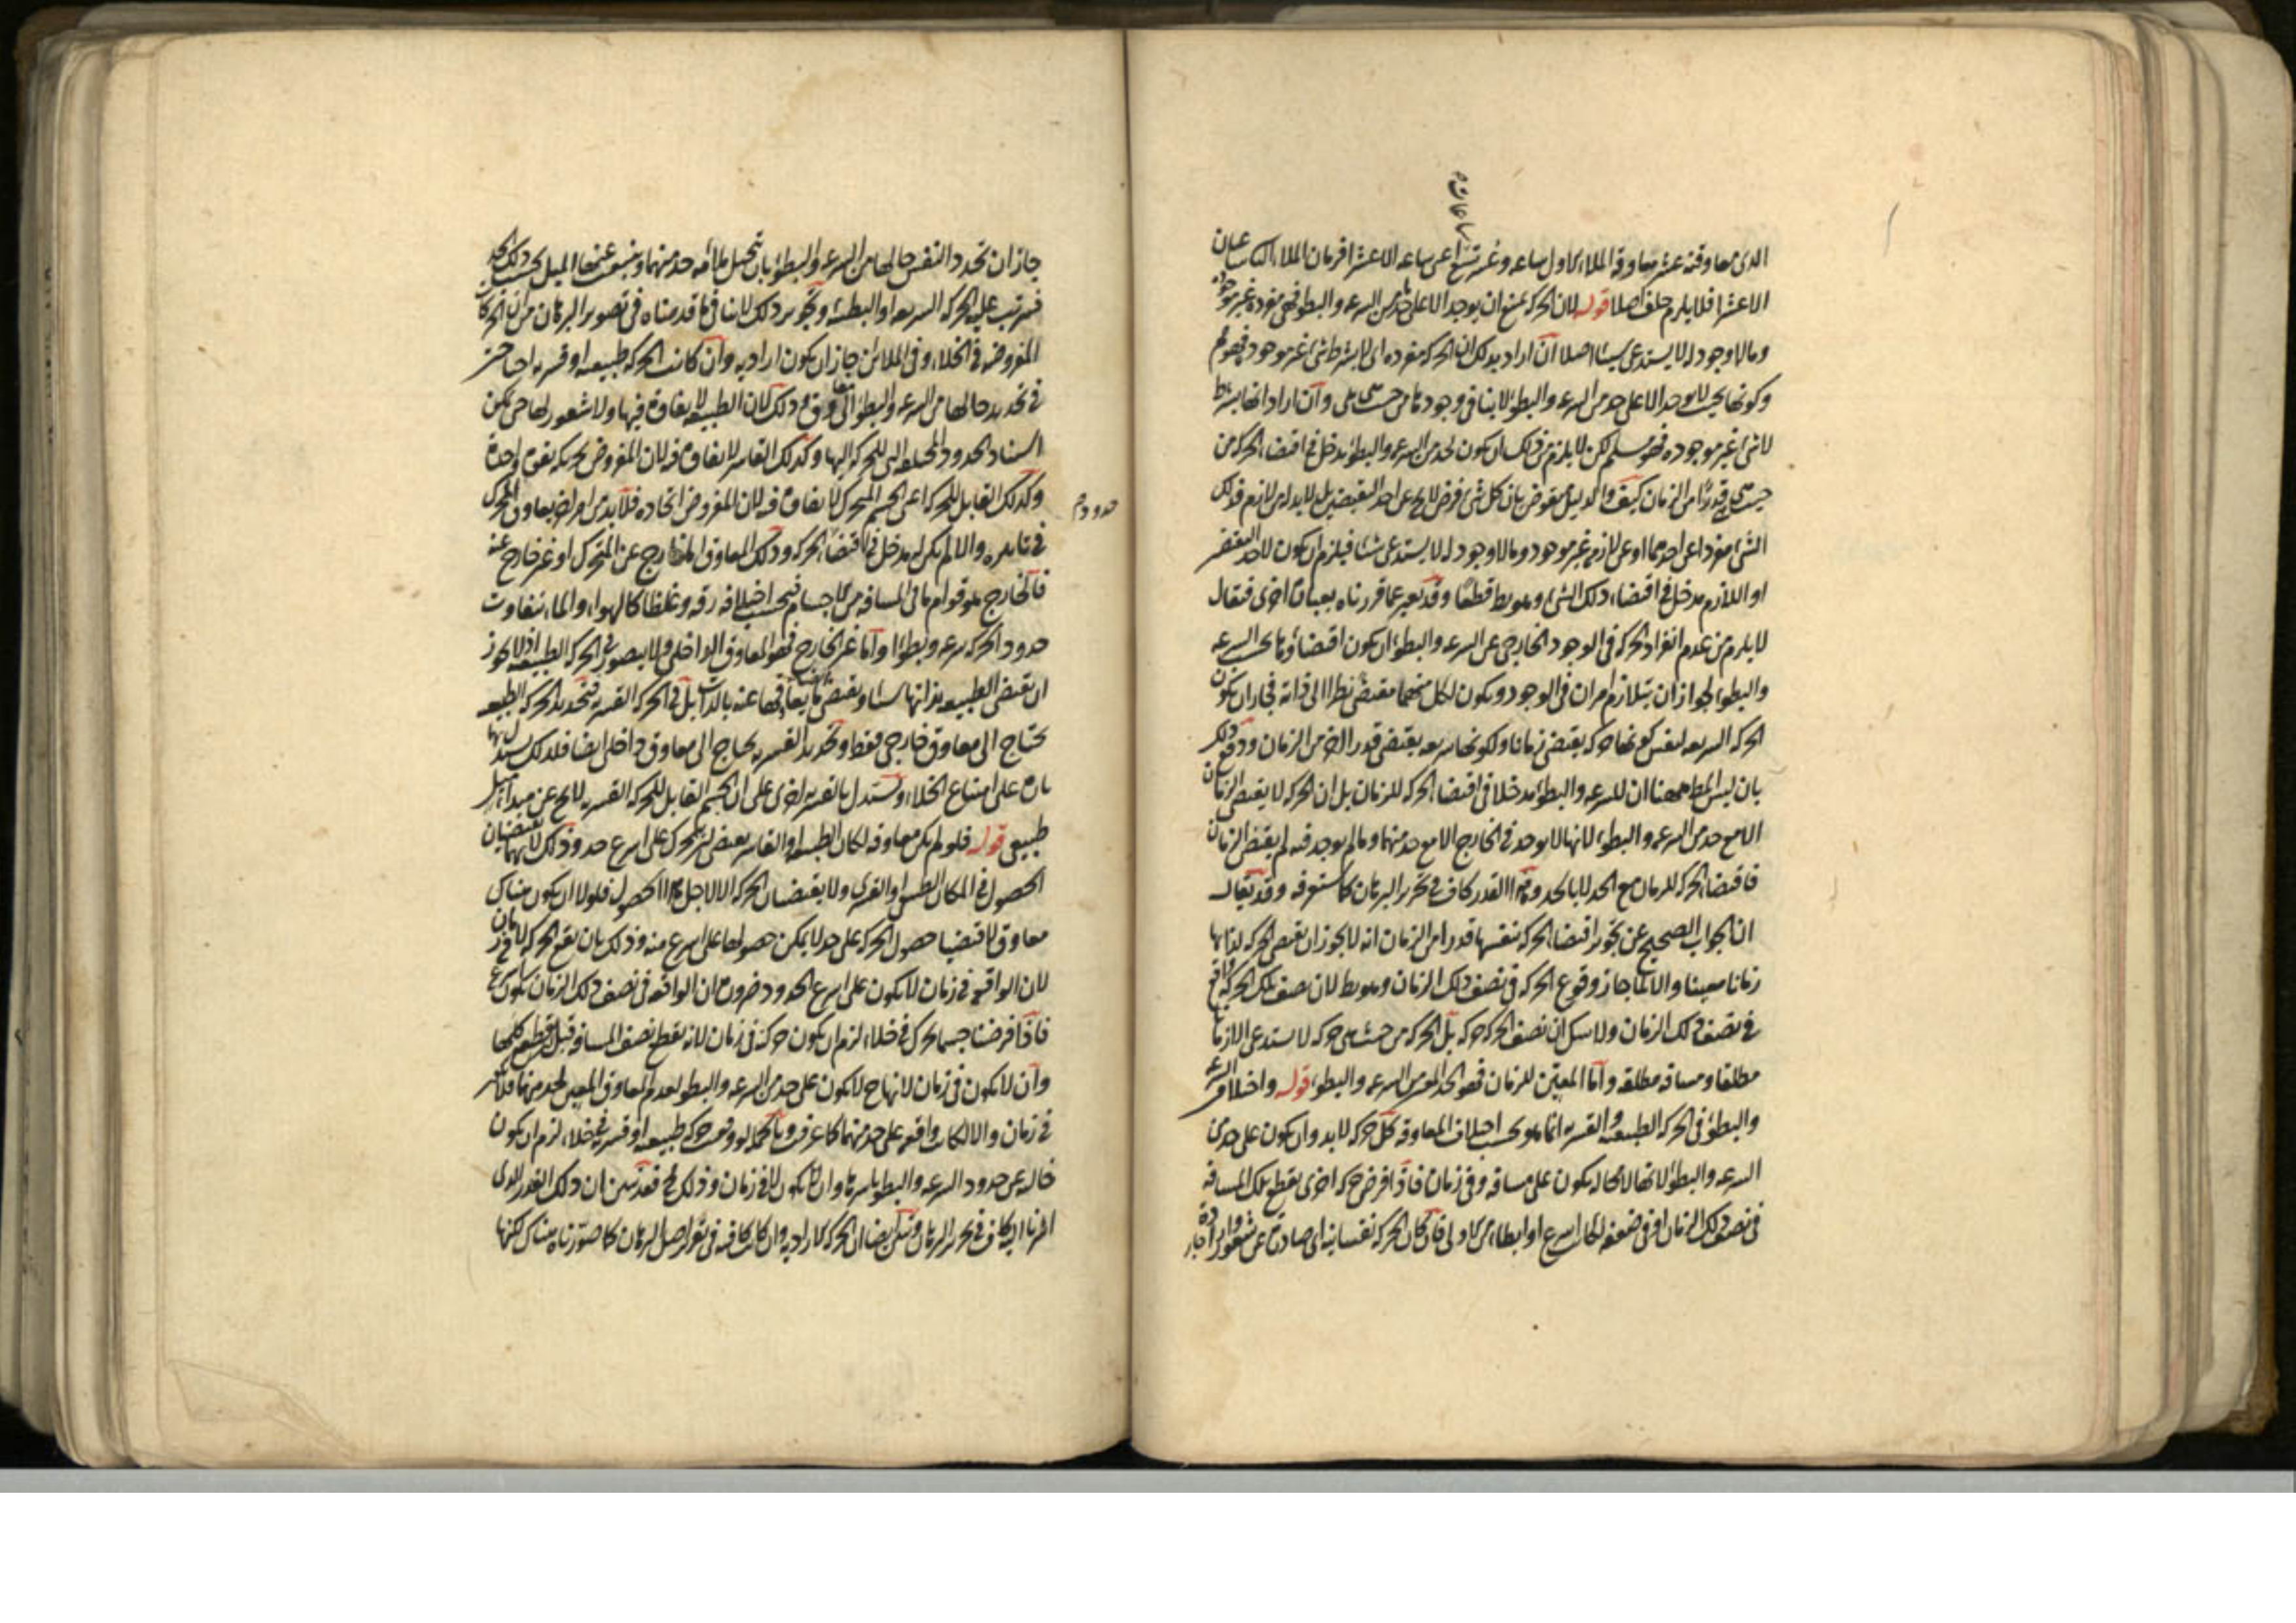 الذى معاوقته عشر معاوقة الملاء الاول ساعه و عشر تسع اعنى ساعه الا عشرا فزمان الملاء الثانى ساعتان
الا عشرا فلا يلزم خلف اصلا قوله لان الحركه يمتنع ان يوجد الا على حد من السرعه والبطؤ فهى مفردة غير موجوده
وما لا وجود له لا يستدعى شيئا اصلا ان اراد بذلك ان الحركه مفرده اى لا بشرط شئ غير موجوده فهو مم
وكونها بحيث لا يوجد الا على حد من السرعه والبطؤ لا ينافى وجودها من حيث هى هى وان اراد انها بشرط
لا شئ غير موجوده فهو مسلم لكن لا يلزم من ذلك ان يكون لحد من السرعه والبطؤ مدخل فى اقتضاء الحركه من
حيث هى قدرا من الزمان كيف والدليل منقوض بان كل شئ فرض لا يخ عن احد النقيضين بل لا بد له من لازم فذلك
الشئ مفردا عن احدهما او عن لازمه غير موجود وما لا وجود له لا يستدعى شيئا فيلزم ان يكون لاحد النقيضين
او اللازم مدخل فى اقتضاء ذلك الشئ وهو بط قطعا وقد يعبر عما قررناه بعبارة اخرى فيقال
لا يلزم من عدم انفراد الحركه فى الوجود الخارجى عن السرعه والبطؤ ان يكون اقتضاؤها بحسب السرعه
والبطؤ لجواز ان يتلازم امران فى الوجود ويكون لكل منهما مقتضى نظرا الى ذاته فجاز ان يكون
الحركه السريعه لنفس كونها حركه يقتضى زمانا ولكونها سريعه يقتضى قدرا اخر من الزمان ودفع ذلك
بان ليس المط ههنا ان للسرعه والبطؤ مدخلا فى اقتضاء الحركه للزمان بل ان الحركه لا يقتضى الزمان
الا مع حد من السرعه والبطؤ لانها لا يوجد فى الخارج الا مع حد منهما وما لم يوجد فيه لم يقتض الزمان
فاقتضاء الحركه للزمان مع الحد لا بالحد وهذا القدر كاف فى تحرير البرهان كما ستعرفه وقد يقال
ان الجواب الصحيح عن تجويز اقتضاء الحركه بنفسها قدرا من الزمان انه لا يجوز ان يقتضى الحركه لذاتها
زمانا معينا والا لما جاز وقوع الحركه فى نصف ذلك الزمان وهو بط لان نصف تلك الحركه واقع
فى نصف ذلك الزمان ولا شك ان نصف الحركه حركه بل الحركه من حيث هى حركه لا يستدعى الا زمانا
مطلقا ومسافه مطلقه واما المعين للزمان فهو الحد المعين من السرعه والبطؤ قوله واختلاف السرعه
والبطؤ فى الحركه الطبيعيه والقسريه انما هو بحسب اختلاف المعاوقه كل حركه لا بد وان يكون على حد من
السرعه والبطؤ لانها لا محاله يكون على مسافه وفى زمان فاذا فرض حركه اخرى يقطع تلك المسافه
فى نصف ذلك الزمان او فى ضعفه لكانت اسرع او ابطأ من الاولى فان كان الحركه نفسانيه اى صادرة عن شعور واراده
جاز ان تحدد النفس حالها من السرعه والبطؤ بان يتخيل ملائمه حد منهما وينبعث عنها الميل بحسب ذلك الحد
فيترتب عليه الحركه السريعه او البطيئه وتجويز ذلك لا ينافى ما قدمناه فى تصوير البرهان من ان الحركات
المفروضه فى الخلاء وفى الملائين جاز ان يكون اراديه وان كانت الحركه طبيعيه او قسريه احتاجت
فى تحديد حالها من السرعه والبطؤ الى معاوق وذلك لان الطبيعه لا يتفاوت فيها ولا شعور لها حتى يمكن
اسناد الحدود المختلفه التى للحركه اليها وكذلك القاسر لا يتفاوت فيه لان المفروض تحريكه بقوة واحدة
وكذلك القابل للحركه اعنى الجسم المتحرك لا يتفاوت فيه لان المفروض اتحاده فلا بد من امر اخر يعاوق المحرك
فى تاثيره والا لم يكن له مدخل فى اقتضاء الحركه وذلك المعاوق اما خارج عن المتحرك او غير خارج عنه
فالخارج هو قوام ما فى المسافه من الاجسام فبحسب اختلافه رقه وغلظا كالهواء والماء يتفاوت
حدود الحركه سرعه وبطؤا واما غير الخارج فهو المعاوق الداخلى ولا يتصور فى الحركه الطبيعيه اذ لا يجوز
ان يقتضى الطبيعه بذاتها شيئا ويقتضى ما يعاوقها عنه بالذات بل فى الحركه القسريه فتحديد الحركه الطبيعيه
يحتاج الى معاوق خارجى فقط وتحديد القسريه يحتاج الى معاوق داخلى ايضا فلذلك يستدل بها
تارة على امتناع الخلاء ويستدل بالقسريه اخرى على ان الجسم القابل للحركه القسريه لا يخ عن مبداء ميل
طبيعى قوله فلو لم يكن معاوقه لكان الطبيعه او القاسر يقتضى التحرك على اسرع حد وذلك لانهما يقتضيان
الحصول فى المكان الطبيعى او القسرى ولا يقتضيان الحركه الا لاجل هذا الحصول فلولا ان يكون هناك
معاوق لاقتضيا حصول الحركه على حد لا يمكن حصولها على اسرع منه وذلك بان يقع الحركه لا فى زمان
لان الواقعه فى زمان لا يكون على اسرع الحدود ضرورة ان الواقعه فى نصف ذلك الزمان يكون اسرع
فاذا فرضنا جسما يتحرك فى خلاء لزم ان يكون حركته فى زمان لانه يقطع نصف المسافه قبل قطع كلها
وان لا يكون فى زمان لانها ح لا يكون على حد من السرعه والبطؤ لعدم المعاوق المعين لحد منهما فلا يكون
فى زمان والا لكانت واقعه على حد منهما كما عرفت وبالجمله لو وقعت حركه طبيعيه او قسريه فى خلاء لزم ان يكون
خاليه عن حدود السرعه والبطؤ باسرها وان لا يكون لا فى زمان وذلك مح فقد تبين ان ذلك القدر الذى
اشرنا اليه كاف فى تحرير البرهان وتبين ايضا ان الحركه الاراديه وان كانت كافيه فى تقرير اصل البرهان كما صورناه هناك لكنها
حدود م